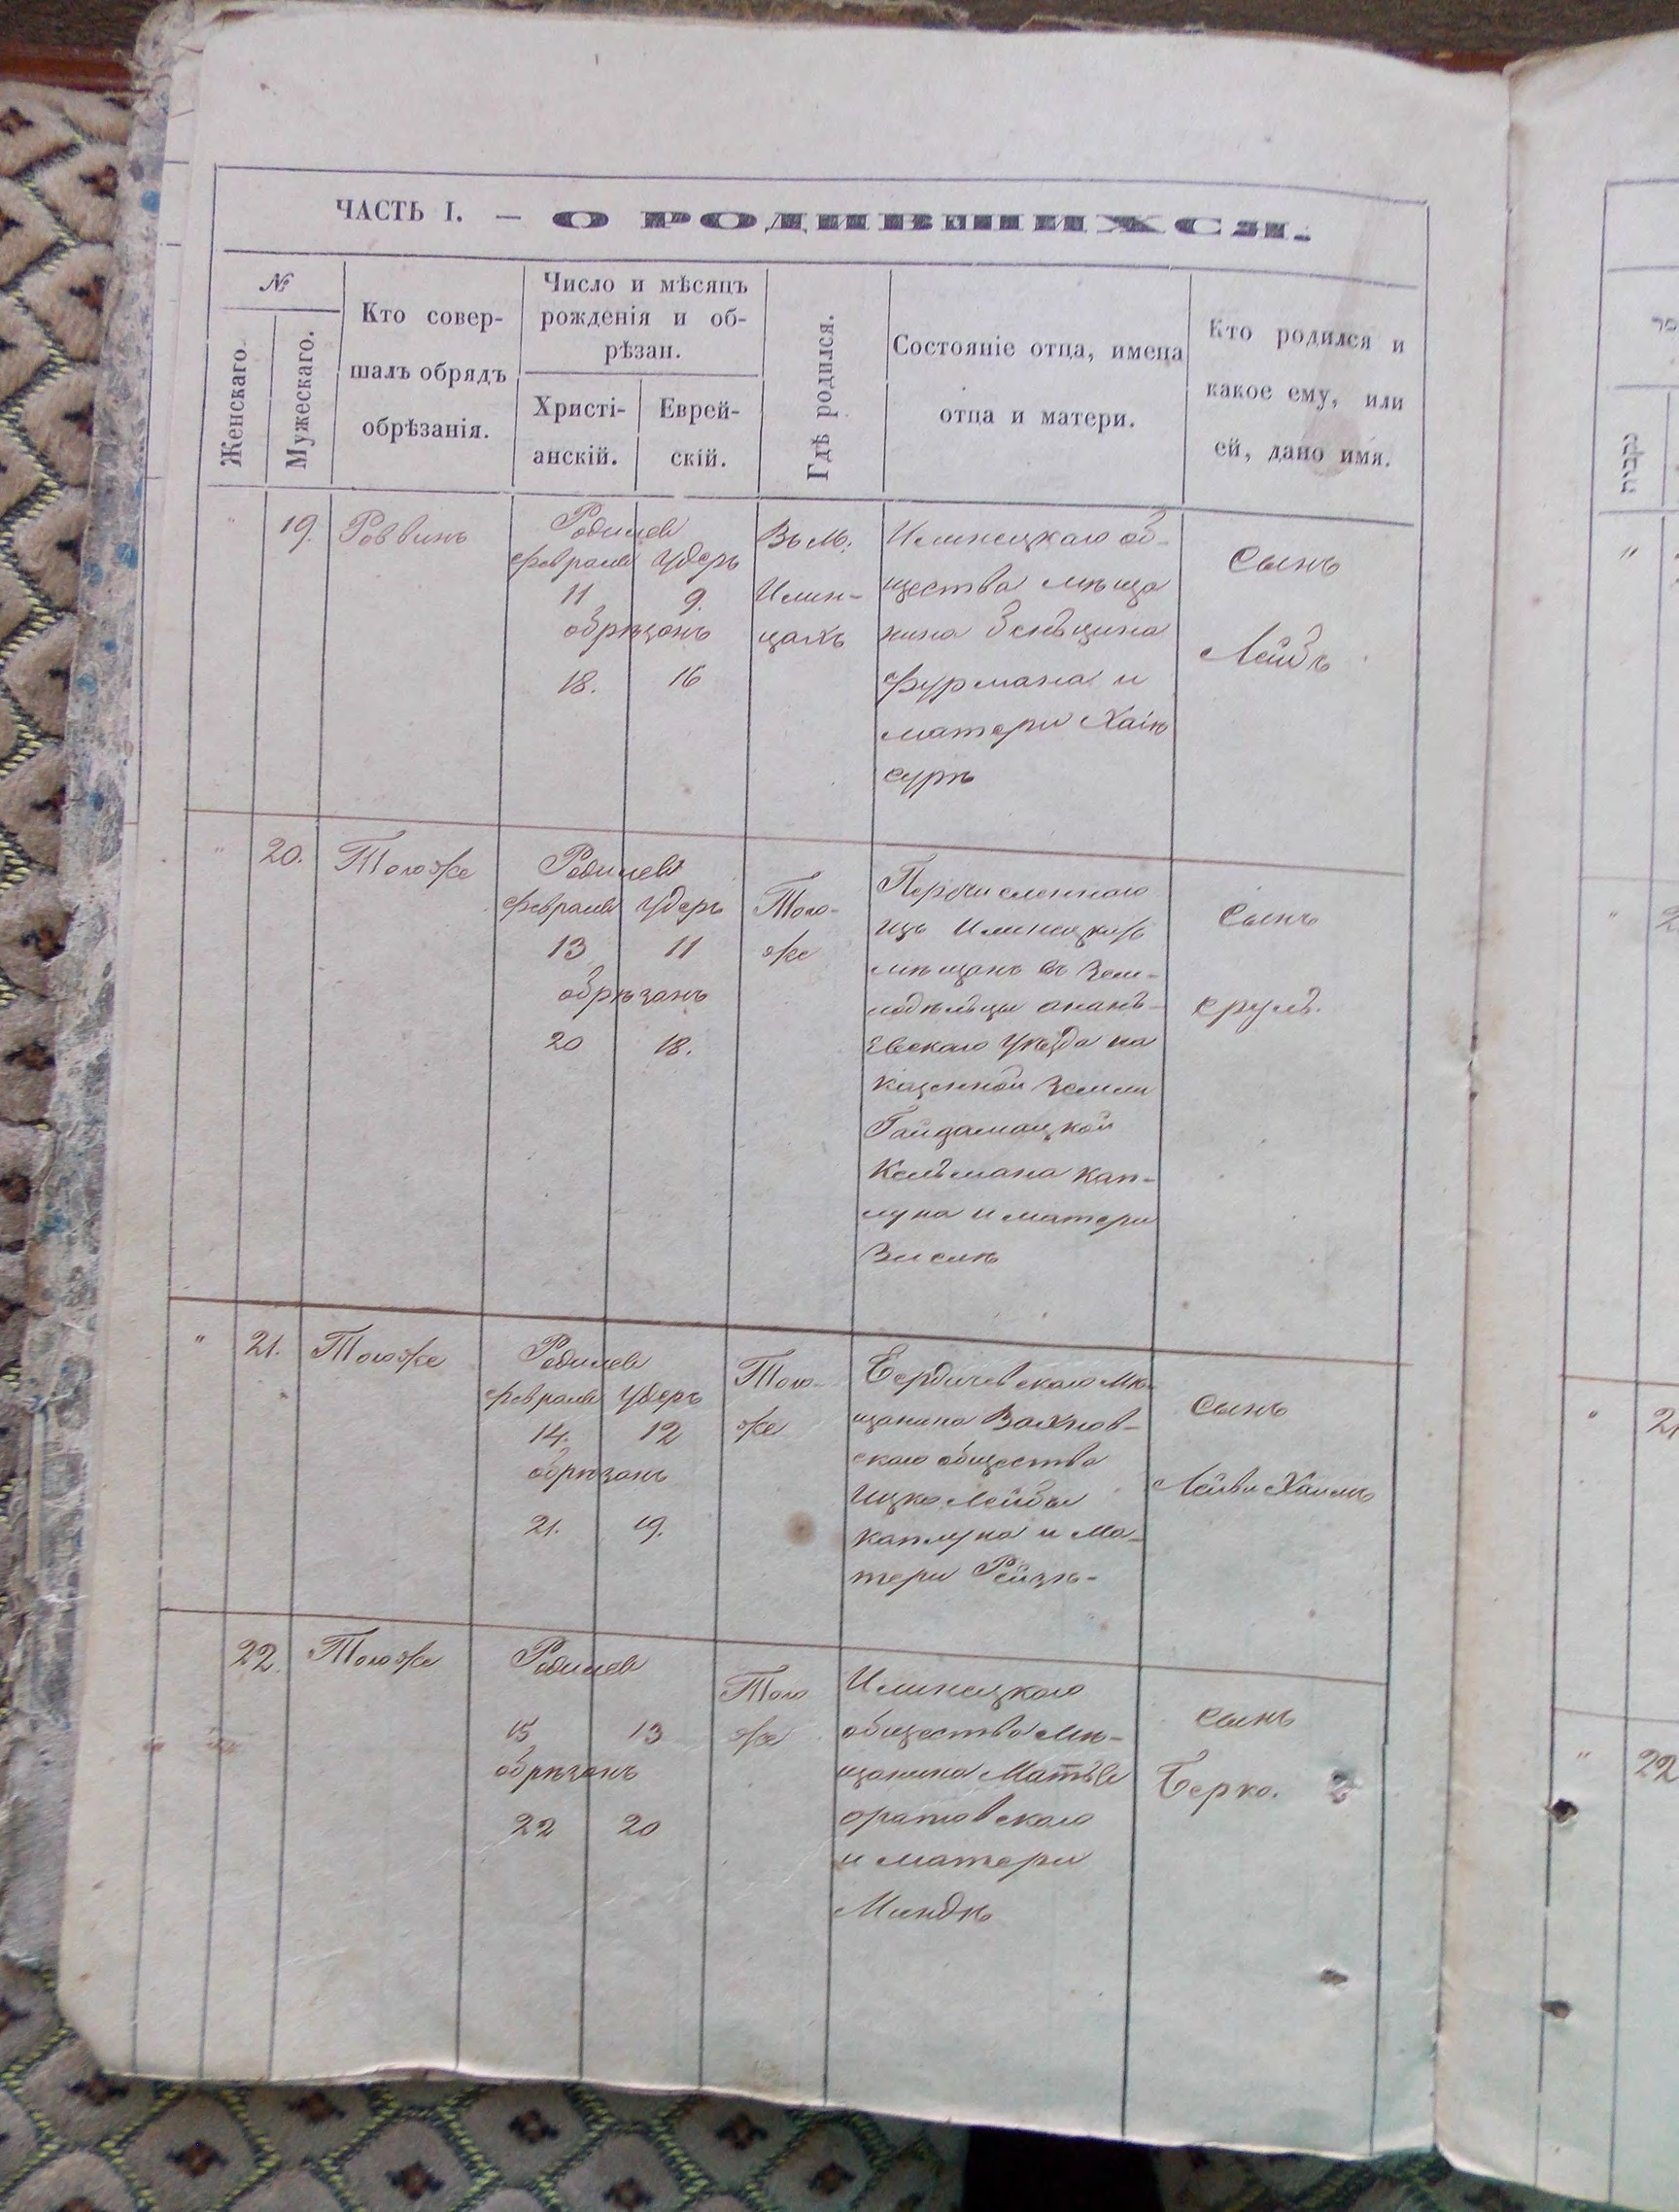 ЧАСТЬ I. — О РОДИВШИХСЯ.
№
Женскаго.
Мужескаго.
Кто совер-
шалъ обрядъ
обрѣзанія.
Число и мѣсяцъ
рожденія и об-
рѣзан.
Христі-
анскій.
Еврей-
скій.
Гдѣ родился.
Состояніе отца, имена
отца и матери.
Кто родился и
какое ему, или
ей, дано имя.
" 19. Раввинъ
Родился
февраля Удеръ
11 9.
обрѣзанъ
18. 16
Въ м.
Илин-
цахъ
Илинецкаго об-
щества мѣща
нина
Фурмана и
матери Хаіи
Суры
Сынъ
Лейбъ
" 20. Тогоже
Родился
февраля Удеръ
13 11
обрѣзанъ
20 18.
Того-
же
Перечисленнаго
изъ Илинецкихъ
мѣщанъ въ Зем-
ледѣльцы Анань-
евскаго Уѣзда на
казенной Земли
Гайдамацкой
Кельмана Кап-
луна и матери
Зислѣ
Сынъ
Сруль.
" 21. Тогоже
Родился
февраля Удеръ
14. 12
обрѣзанъ
21. 19.
Того-
же
Бердичевскаго мѣ-
щанина Вахнов-
скаго общества
Ицко Лейбы
Каплуна и Ма-
тери Рейзѣ-
Сынъ
22. Тогоже
Родился
15 13
обрѣзанъ
22 20
Того
же
Илинецкаго
общества мѣ-
щанина
Оратовскаго
и матери
Миндѣ
Сынъ
Берко.
" 22